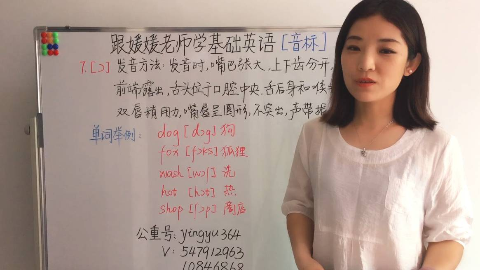 跟媛媛老师学基础英语 [音标]
7. [ɔ] 发音方法: 发音时, 嘴巴张大, 上下齿分开,
前端露出, 舌头位于口腔中央, 舌后身和
双唇稍用力, 嘴唇呈圆形, 不突出, 声带振
单词举例:
dog [dɔg] 狗
fox [fɔks] 狐狸
wash [wɔʃ] 洗
hot [hɔt] 热
shop [ʃɔp] 商店
公重号: yingyu364
V: 547912963
10846868